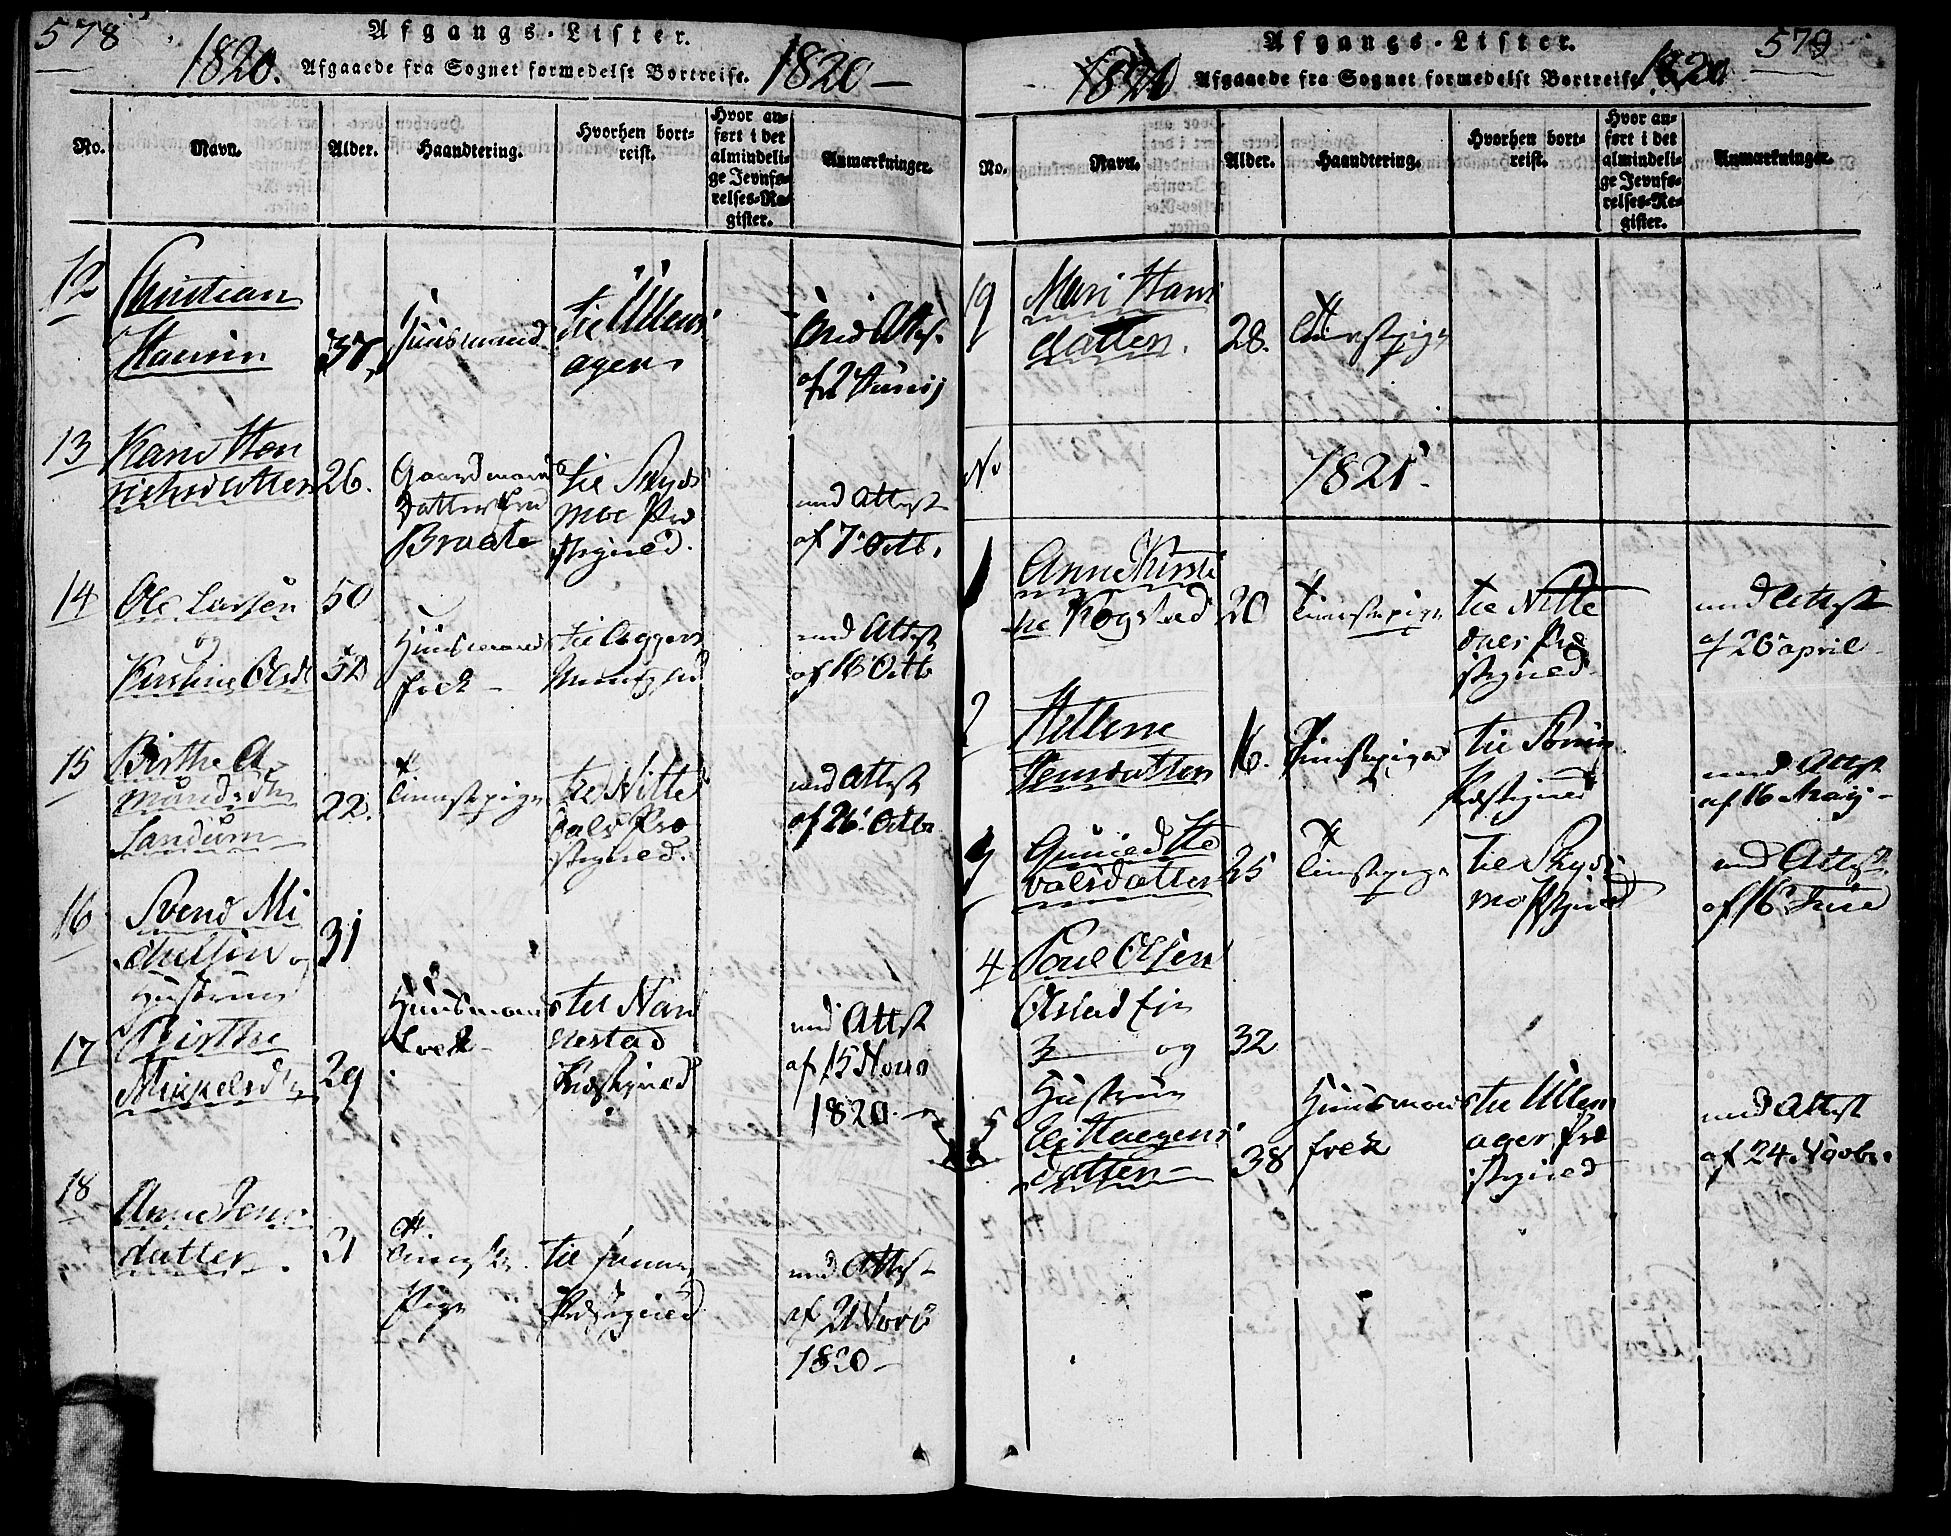 578
Afgangs-Lister.
1820. Afgaaede fra Sognet formedelst Bortreise. 1820 —
No.
Navn.
Alder.
Haandtering.
Hvorhen bort-
reist.
Hvor an-
ført i det
almindeli-
ge Jevnfø-
relses-Re-
gister.
Anmærkninger.
12
Christian
Hansen
37,
Huusmand
til Ullens
ager
med Attest
af 2 Junij
13
Kari
26.
Gaardmand
Datter fra
Braate
til Skyds
moe Præ
stegield.
med Attest
af 7 Octb.
14
Ole Larsen
og
Kirstine Olsdt
50
52
Huusmands
folk —
til Aggers
med Attest
af 16 Octb
15
Birthe A
mundsdtr
Sandum
22.
Tienstepige
til Nitte
dals Præ
stegield.
med Attest
af 26 Octbr
16
Svend Mi
chelsen og
Hustrue
31
17
Birthe
Mickelsdtr
29
Huusmands
folk
til Nan
nestad
Præstegield
med Attest
af 15 Novb
1820 —
18
Anne Jens
datter.
21
Tieneste
Pige
til
Præstegield
med Attest
af 21 Novb
1820 —
579
Afgangs-Lister.
1820 Afgaaede fra Sognet formedelst Bortreise. 1820
No.
Navn.
Alder.
Haandtering.
Hvorhen bort-
reist.
Hvor an-
ført i det
almindeli-
ge Jevnfø-
relses-Re-
gister.
Anmærkninger.
19
Mari Hans
datter.
28.
Tienstepige
No
1821.
1
Anne Kirsti
ne Kogstad
20
Tienstepige
til Nitte
dals Præ
stegield
med Attest
af 26 april
2
Hellene
Jensdatter
16.
Tienstepige
til
Præstegield
med Attest
af 16 Maij —
3
Gunild
valsdatter
25
Tienstepige
til Skyds
moe Pstgield
med Attest
af 16 Junii
4
Poul Olsen
Ølstad Ein
og
Hustrue
datter —
32
38
Huusmands
folk
til Ullens
ager Præ
stegield
med Attest
af 24 Novbr.